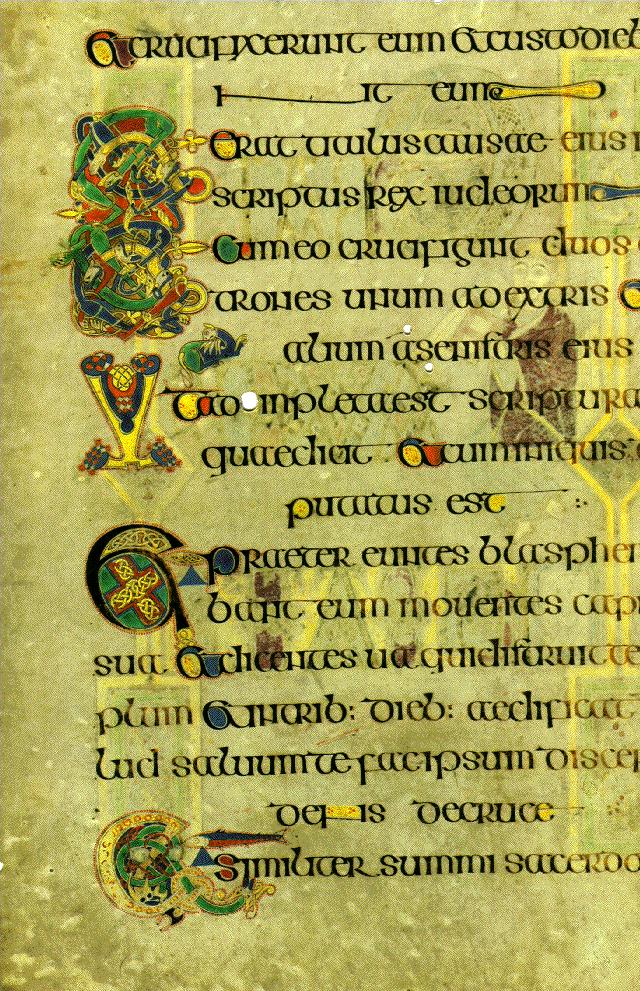 Et crucifixerunt eum et custodieb
nt eum
Erat titulus causae eius
scriptus rex iudeorum
Et cum eo crucifigunt duos
latrones unum adextris
alium asenistris eius
Ut adinpleta est scriptura
quae dicit et cum iniquis
putatus est
Et praeter euntes blasphem
bant eum mouentes capi
sua et dicentes ua qui distruit te
plum et in trib: dieb: aedificat
lud saluum te fac ipsum discen
dens decruce
Et similiter summi sacerdo